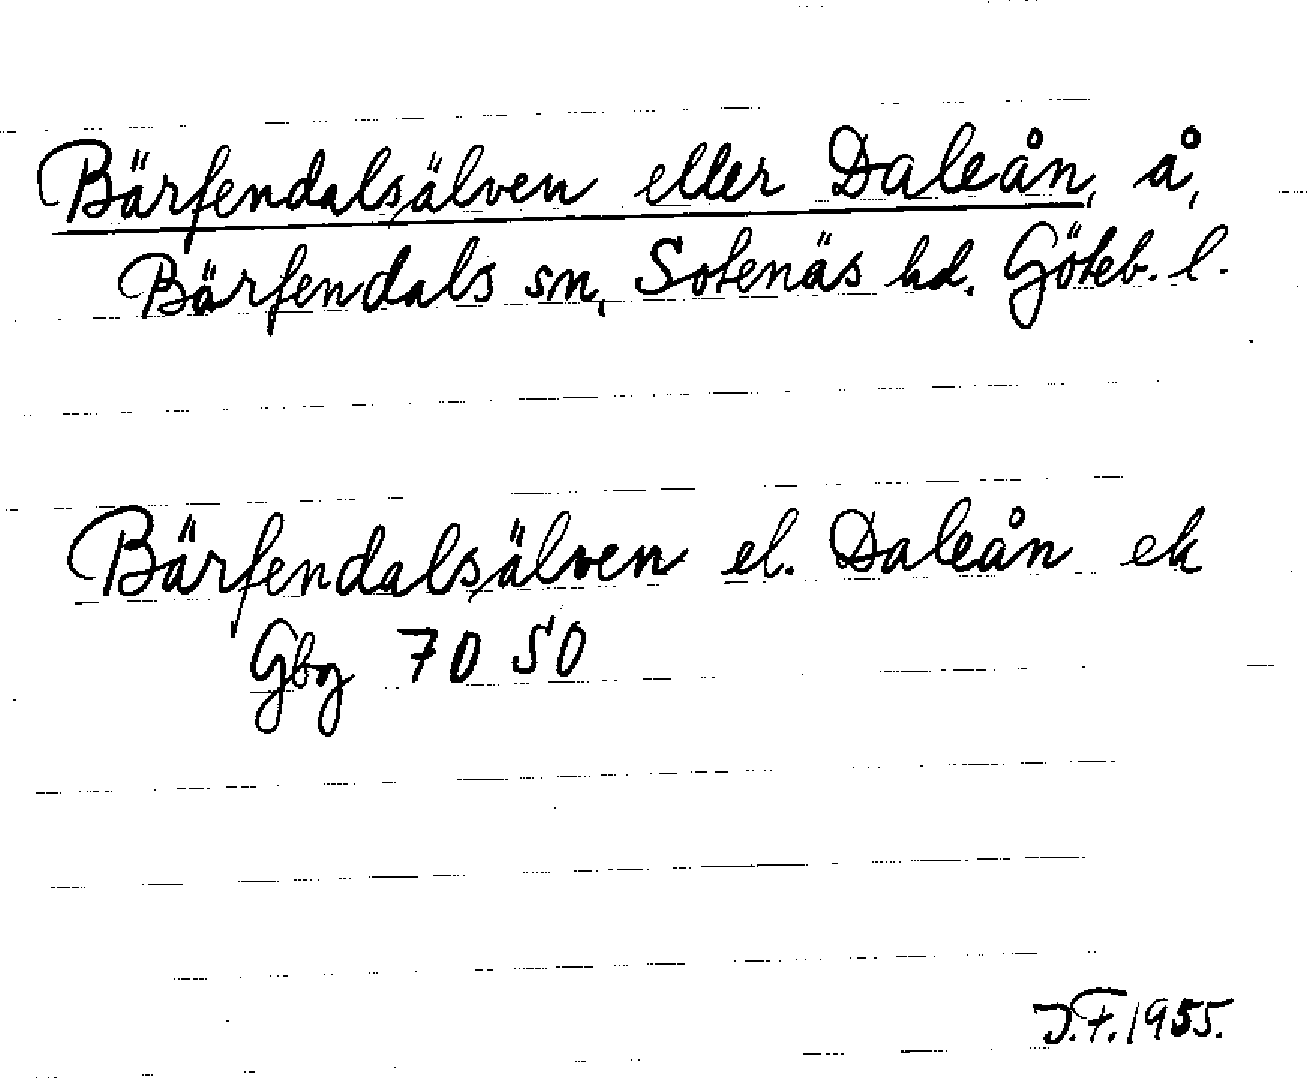 Bärfendalsälven eller Daleån, å,
Bärfendals sn, Sotenäs hd. Göteb. l.
Bärfendalsälven el. Daleån ek
Gbg 70 SO
J.F. 1955.